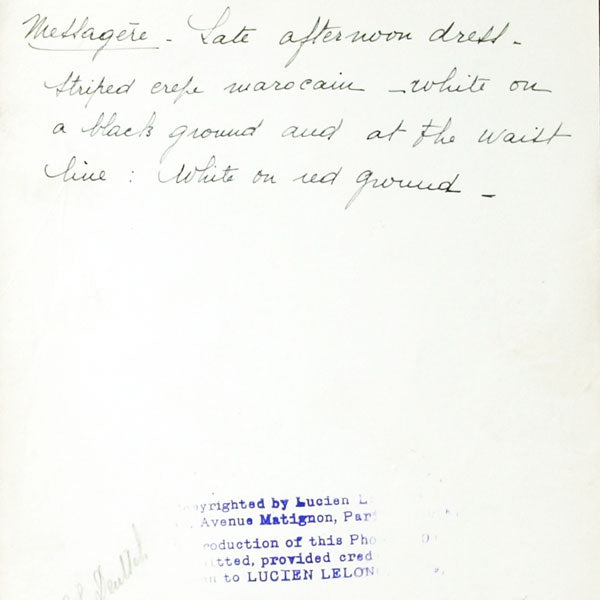 Messagère - Late afternoon dress -
Striped crepe marocain - white on
a black ground and at the waist
line : White on red ground -
yrighted by Lucien L
Avenue Matignon, Par
roduction of this Pho
itted, provided cred
n to LUCIEN LELON